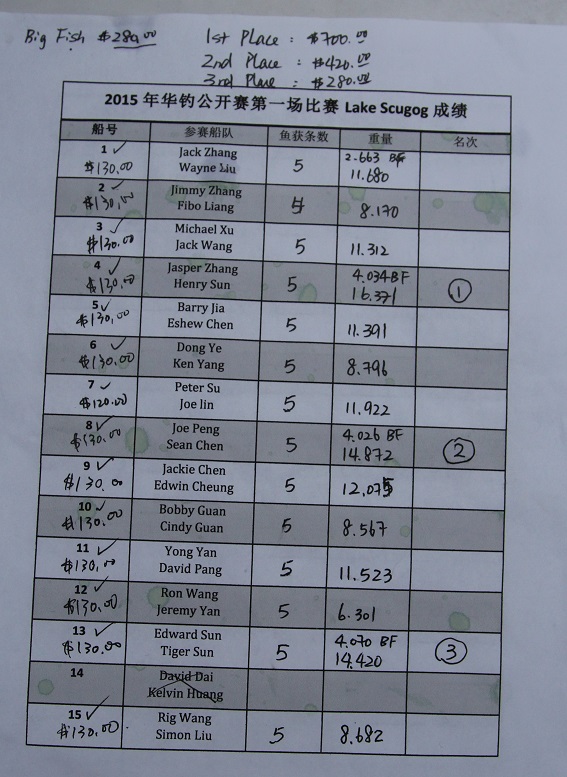 Big Fish $280.00 1st Place : $700.00
2nd Place : $420.00
3rd Place : $280.00
2015 年华钓公开赛第一场比赛 Lake Scugog 成绩
船号 参赛船队 鱼获条数 重量 名次
1 ✓ Jack Zhang 2.663 BF
$130.00 Wayne Liu 5 11.680
2 ✓ Jimmy Zhang
$130.00 Fibo Liang 8.170
3 ✓ Michael Xu
$130.00 Jack Wang 5 11.312
4 ✓ Jasper Zhang 4.034 BF
$130.00 Henry Sun 5 16.371 ①
5 ✓ Barry Jia
$130.00 Eshew Chen 5 11.391
6 ✓ Dong Ye
$130.00 Ken Yang 5 8.796
7 ✓ Peter Su
$120.00 Joe lin 5 11.922
8 ✓ Joe Peng 4.026 BF
$130.00 Sean Chen 5 14.872 ②
9 ✓ Jackie Chen
$130.00 Edwin Cheung 5 12.075
10 ✓ Bobby Guan
$130.00 Cindy Guan 5 8.567
11 ✓ Yong Yan
$130.00 David Pang 5 11.523
12 ✓ Ron Wang
$130.00 Jeremy Yan 5 6.301
13 ✓ Edward Sun 4.070 BF
$130.00 Tiger Sun 5 14.420 ③
14 David Dai
Kelvin Huang
15 ✓ Rig Wang
$130.00 Simon Liu 5 8.682